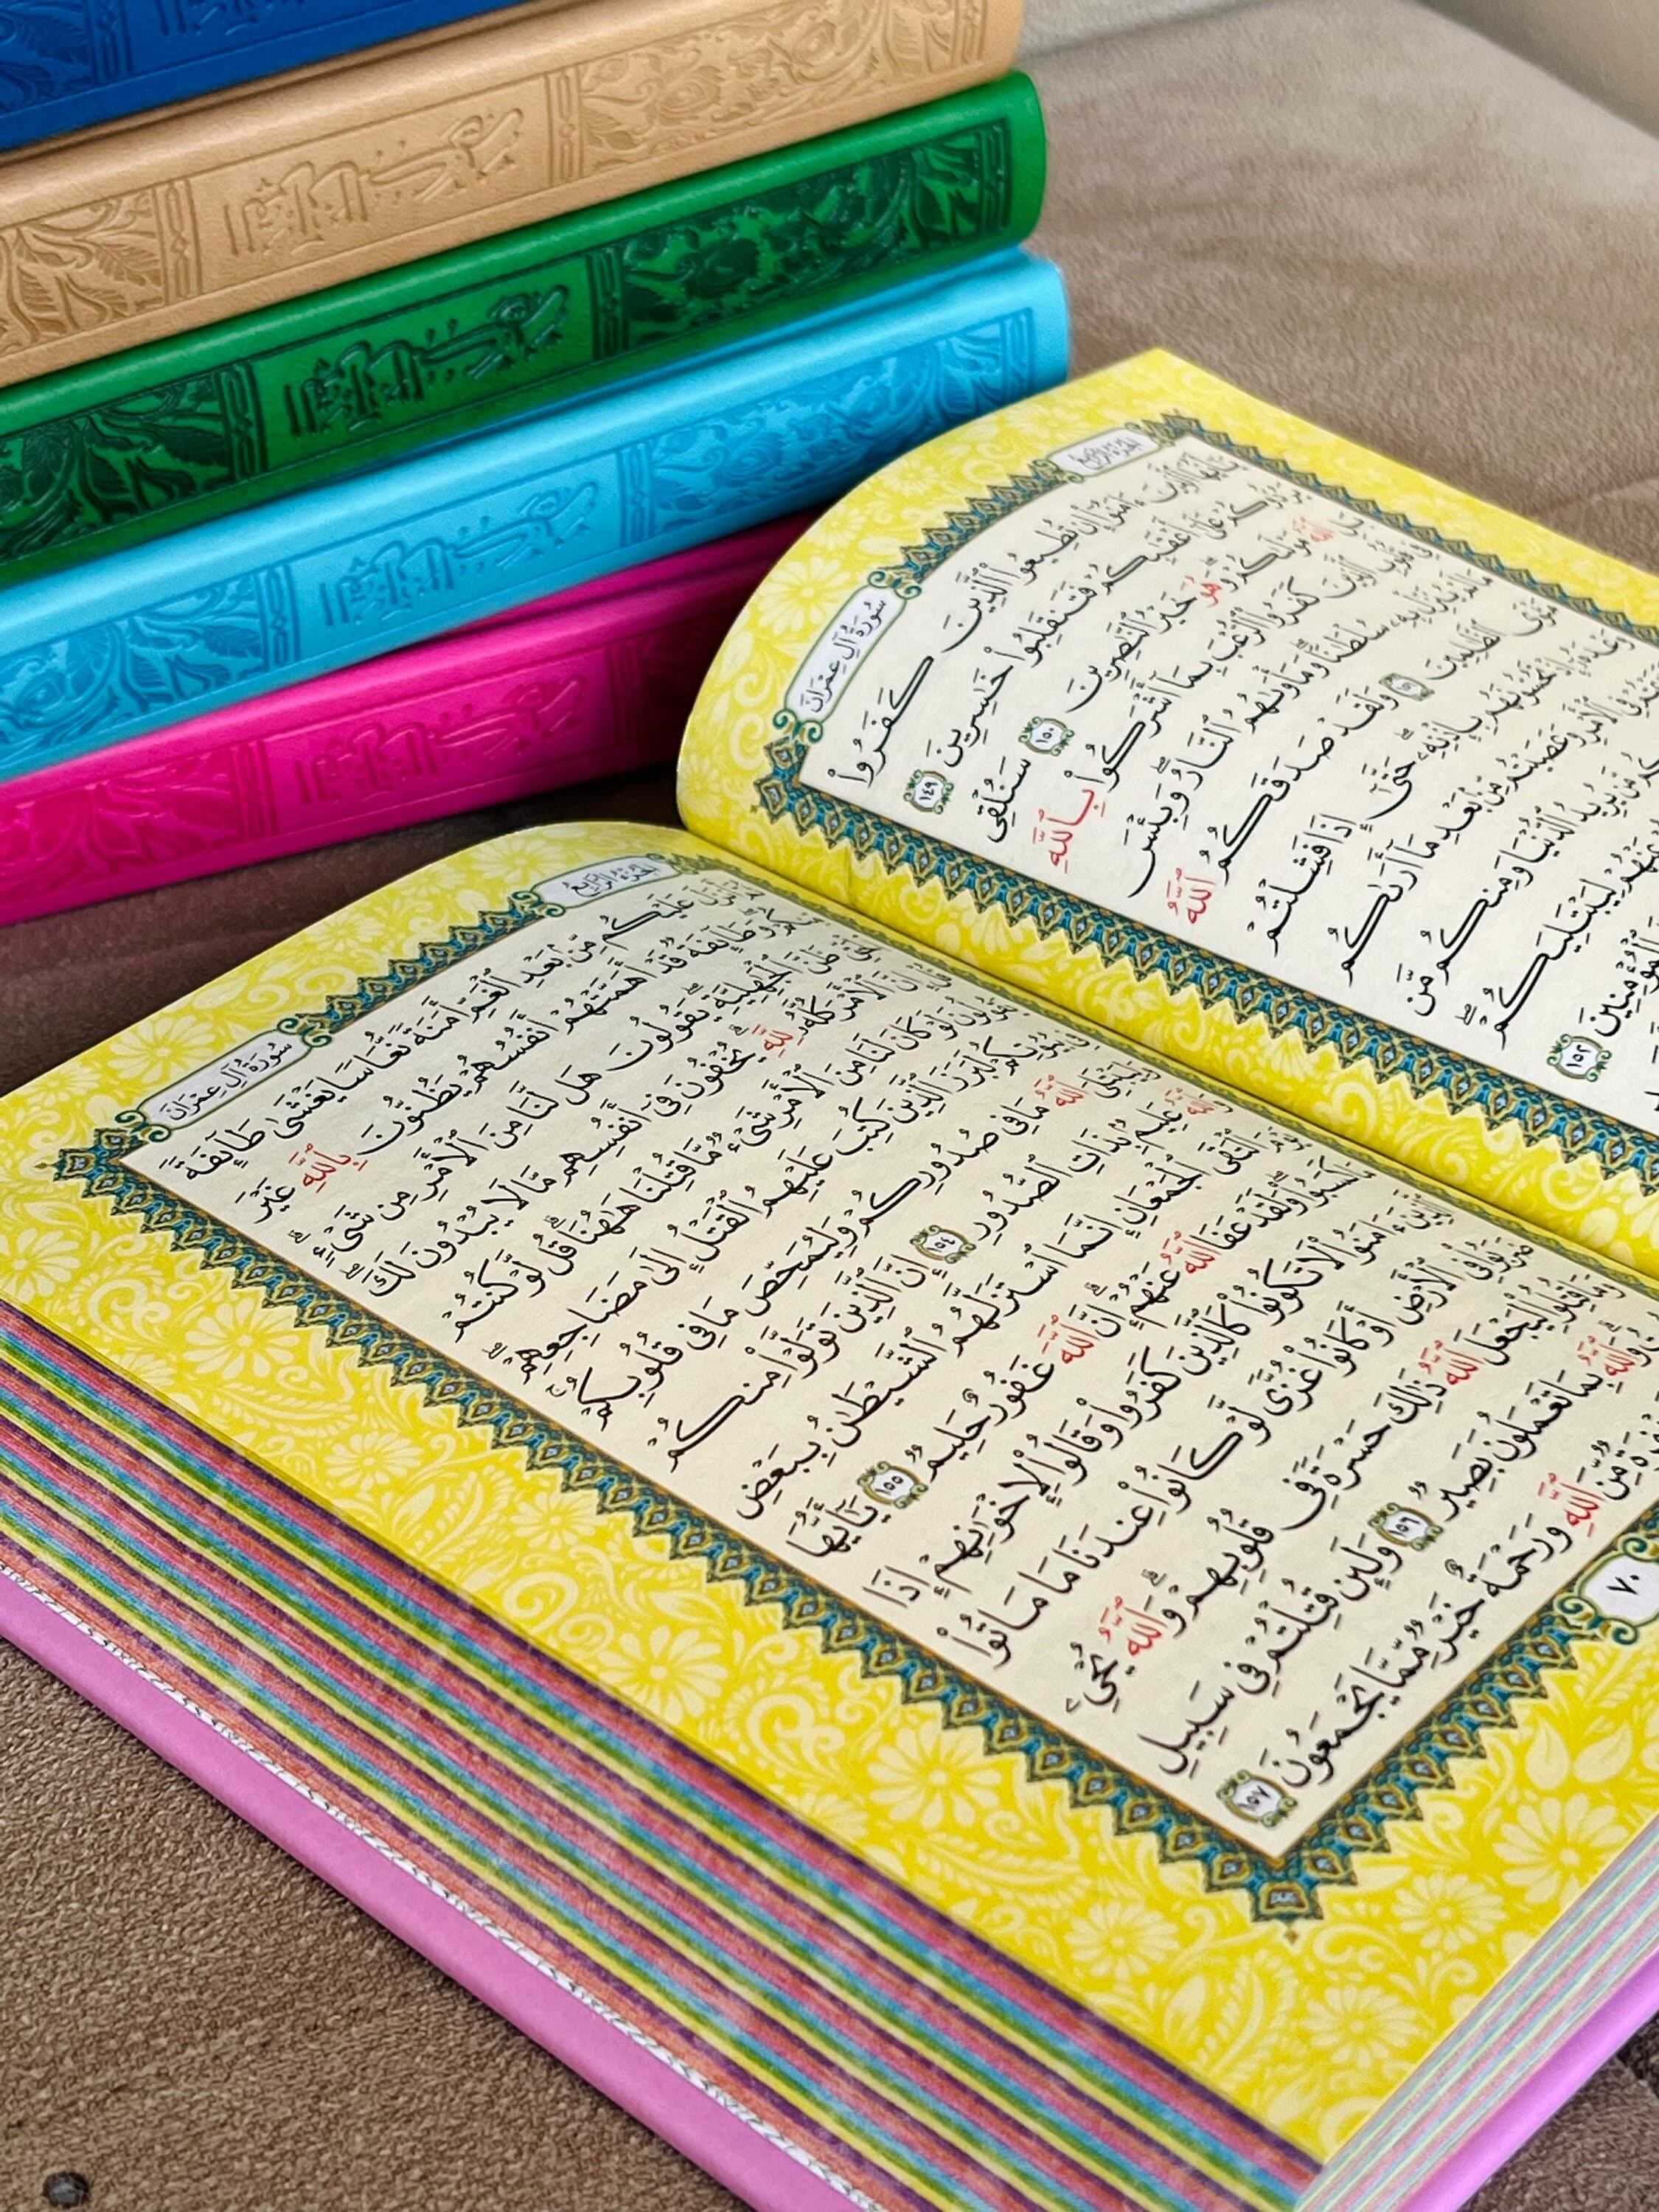 الجزء الرابع
سُورَةُ آلِ عِمْرَان
يَٰٓأَيُّهَا ٱلَّذِينَ ءَامَنُوٓا۟ إِن تُطِيعُوا۟ ٱلَّذِينَ كَفَرُوا۟
يَرُدُّوكُمْ عَلَىٰٓ أَعْقَٰبِكُمْ فَتَنقَلِبُوا۟ خَٰسِرِينَ ١٤٩
بَلِ ٱللَّهُ مَوْلَىٰكُمْ ۖ وَهُوَ خَيْرُ ٱلنَّٰصِرِينَ ١٥٠ سَنُلْقِى
فِى قُلُوبِ ٱلَّذِينَ كَفَرُوا۟ ٱلرُّعْبَ بِمَآ أَشْرَكُوا۟ بِٱللَّهِ
مَا لَمْ يُنَزِّلْ بِهِۦ سُلْطَٰنًا ۖ وَمَأْوَىٰهُمُ ٱلنَّارُ ۚ وَبِئْسَ
مَثْوَى ٱلظَّٰلِمِينَ ١٥١ وَلَقَدْ صَدَقَكُمُ ٱللَّهُ
وَعْدَهُۥٓ إِذْ تَحُسُّونَهُم بِإِذْنِهِۦ ۖ حَتَّىٰٓ إِذَا فَشِلْتُمْ
فِى ٱلْأَمْرِ وَعَصَيْتُم مِّنۢ بَعْدِ مَآ أَرَىٰكُم
مَّن يُرِيدُ ٱلدُّنْيَا وَمِنكُم مَّن
عَنْهُمْ لِيَبْتَلِيَكُمْ ۖ
ٱلْمُؤْمِنِينَ ١٥٢
الجزء الرابع
سُورَةُ آلِ عِمْرَان
ثُمَّ أَنزَلَ عَلَيْكُم مِّنۢ بَعْدِ ٱلْغَمِّ أَمَنَةً نُّعَاسًا يَغْشَىٰ طَآئِفَةً
مِّنكُمْ ۖ وَطَآئِفَةٌ قَدْ أَهَمَّتْهُمْ أَنفُسُهُمْ يَظُنُّونَ بِٱللَّهِ غَيْرَ
ٱلْحَقِّ ظَنَّ ٱلْجَٰهِلِيَّةِ ۖ يَقُولُونَ هَل لَّنَا مِنَ ٱلْأَمْرِ مِن شَىْءٍ ۗ
قُلْ إِنَّ ٱلْأَمْرَ كُلَّهُۥ لِلَّهِ ۗ يُخْفُونَ فِىٓ أَنفُسِهِم مَّا لَا يُبْدُونَ لَكَ ۖ
يَقُولُونَ لَوْ كَانَ لَنَا مِنَ ٱلْأَمْرِ شَىْءٌ مَّا قُتِلْنَا هَٰهُنَا ۗ قُل لَّوْ كُنتُمْ
فِى بُيُوتِكُمْ لَبَرَزَ ٱلَّذِينَ كُتِبَ عَلَيْهِمُ ٱلْقَتْلُ إِلَىٰ مَضَاجِعِهِمْ ۖ
وَلِيَبْتَلِىَ ٱللَّهُ مَا فِى صُدُورِكُمْ وَلِيُمَحِّصَ مَا فِى قُلُوبِكُمْ ۗ
وَٱللَّهُ عَلِيمٌۢ بِذَاتِ ٱلصُّدُورِ ١٥٤ إِنَّ ٱلَّذِينَ تَوَلَّوْا۟ مِنكُمْ
يَوْمَ ٱلْتَقَى ٱلْجَمْعَانِ إِنَّمَا ٱسْتَزَلَّهُمُ ٱلشَّيْطَٰنُ بِبَعْضِ
مَا كَسَبُوا۟ ۖ وَلَقَدْ عَفَا ٱللَّهُ عَنْهُمْ ۗ إِنَّ ٱللَّهَ غَفُورٌ حَلِيمٌ ١٥٥ يَٰٓأَيُّهَا
ٱلَّذِينَ ءَامَنُوا۟ لَا تَكُونُوا۟ كَٱلَّذِينَ كَفَرُوا۟ وَقَالُوا۟ لِإِخْوَٰنِهِمْ إِذَا
ضَرَبُوا۟ فِى ٱلْأَرْضِ أَوْ كَانُوا۟ غُزًّى لَّوْ كَانُوا۟ عِندَنَا مَا مَاتُوا۟
وَمَا قُتِلُوا۟ لِيَجْعَلَ ٱللَّهُ ذَٰلِكَ حَسْرَةً فِى قُلُوبِهِمْ ۗ وَٱللَّهُ يُحْىِۦ
وَٱللَّهُ بِمَا تَعْمَلُونَ بَصِيرٌ ١٥٦ وَلَئِن قُتِلْتُمْ فِى سَبِيلِ
ٱللَّهِ وَرَحْمَةٌ خَيْرٌ مِّمَّا يَجْمَعُونَ ١٥٧
٧٠